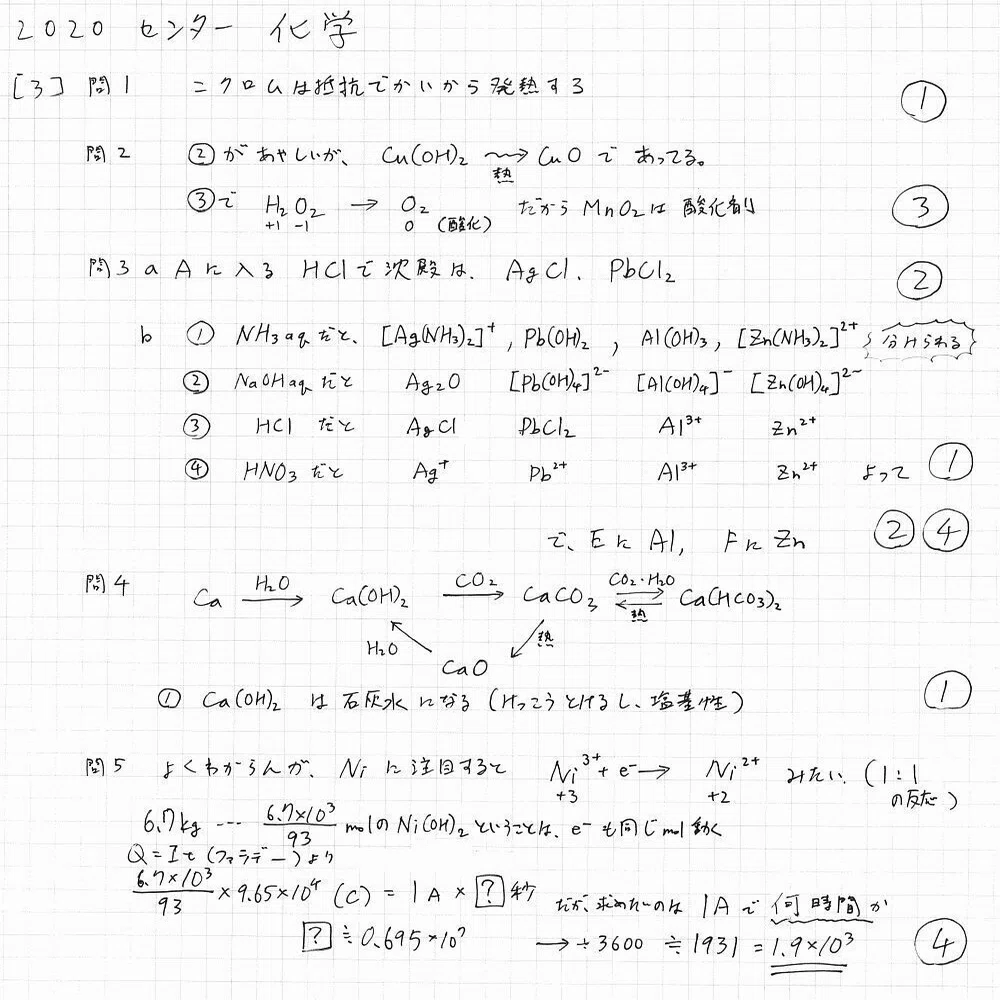 2020 センター 化学
[3] 問1 ニクロムは抵抗でかいから発熱する ①
問2 ②があやしいが、 Cu(OH)₂ ⇝ CuO で あってる。
熱
③で H₂O₂ → O₂ だから MnO₂は 酸化剤 ③
+1 -1 0 (酸化)
問3 a Aに入る HClで沈殿は、 AgCl、 PbCl₂ ②
b ① NH₃aqだと、 [Ag(NH₃)₂]⁺, Pb(OH)₂, Al(OH)₃, [Zn(NH₃)₂]²⁺ 分けられる
② NaOHaqだと Ag₂O [Pb(OH)₄]²⁻ [Al(OH)₄]⁻ [Zn(OH)₄]²⁻
③ HClだと AgCl PbCl₂ Al³⁺ Zn²⁺
④ HNO₃だと Ag⁺ Pb²⁺ Al³⁺ Zn²⁺ よって ①
で、EにAl, FにZn ② ④
問4 Ca →H₂O Ca(OH)₂ →CO₂ CaCO₃ ⇄ CO₂・H₂O 熱 Ca(HCO₃)₂
H₂O 熱
CaO
① Ca(OH)₂ は 石灰水になる (けっこうとけるし、塩基性) ①
問5 よくわからんが、Niに注目すると Ni³⁺ + e⁻ → Ni²⁺ みたい、(1:1
+3 +2 の反応)
6.7kg … 6.7×10³/93 molのNi(OH)₂ということは、e⁻も同じmol動く
Q=It (ファラデー)より
6.7×10³/93 × 9.65×10⁴ (C) = 1A × ? 秒 だが、求めたいのは 1Aで何時間か
? ≒ 0.695×10⁷ → ÷3600 ≒ 1931 = 1.9×10³ ④